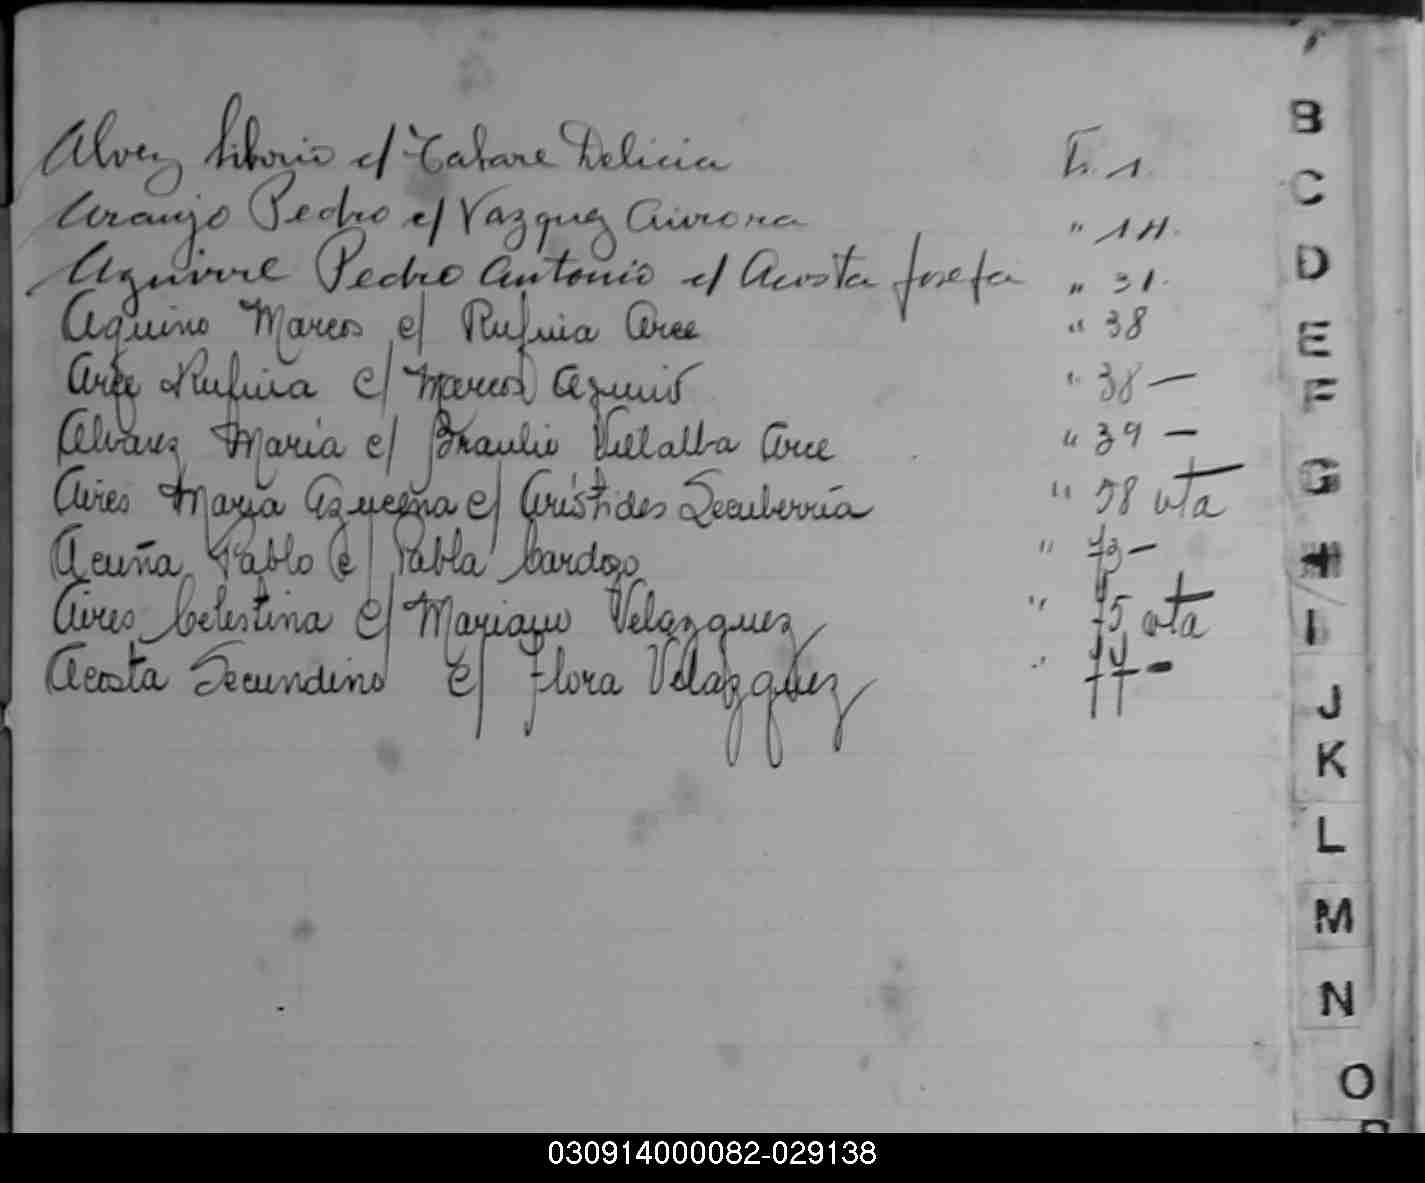 Alvez Liborio c/ Tabare Delicia F. 1.
Araujo Pedro c/ Vazquez Aurora " 14.
Aguirre Pedro Antonio c/ Acosta Josefa " 31.
Aquino Marcos c/ Rufina Arce " 38
Arce Rufina c/ Marcos Aquino " 38 —
Alvarez María c/ Braulio Villalba Arce " 39 —
Aires María Azucena c/ Arístides Secuberría " 58 vta
Acuña Pablo c/ Pabla Cardozo " 73 —
Aires Celestina c/ Mariano Velazquez " 75 vta
Acosta Secundino c/ Flora Velazquez " 77 —
B
C
D
E
F
G
H
I
J
K
L
M
N
O
030914000082-029138